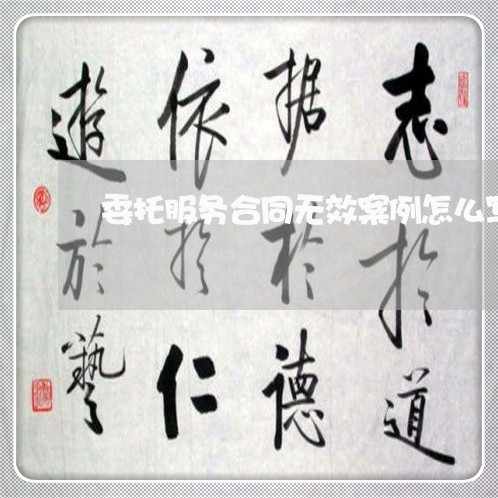 志於道
据於德
依於仁
遊於藝
委托服务合同无效案例怎么